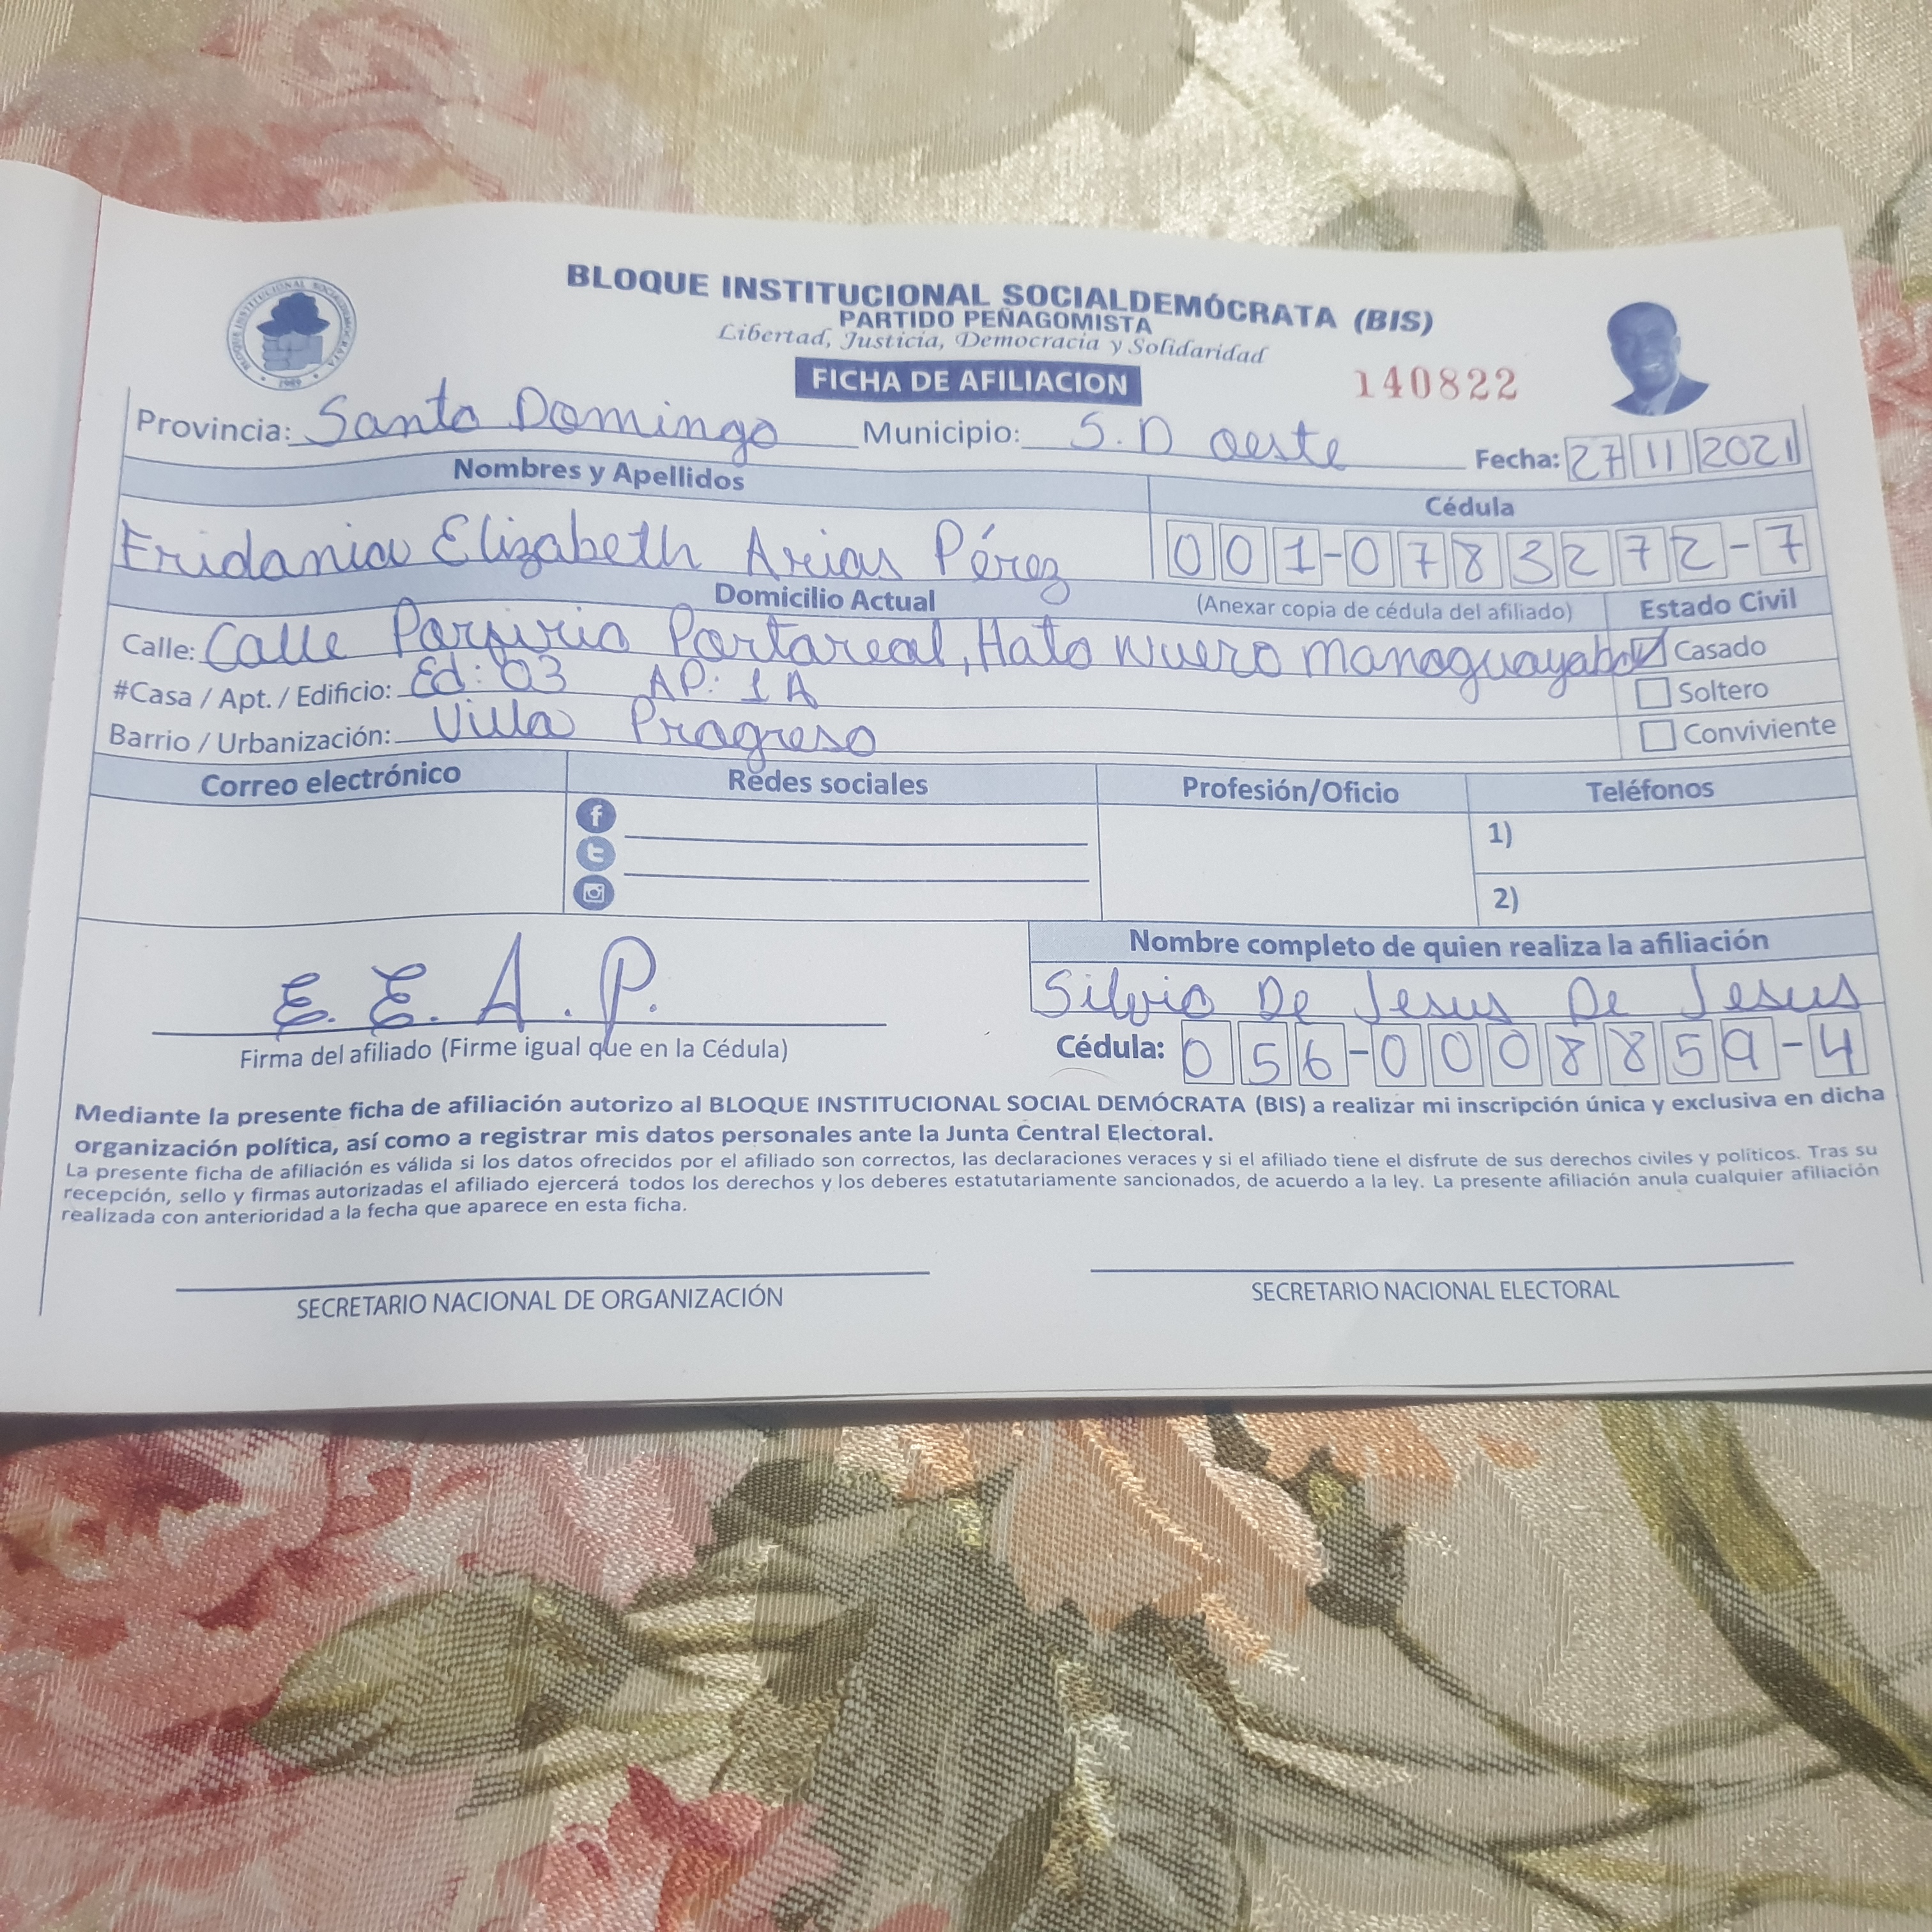 BLOQUE INSTITUCIONAL SOCIALDEMÓCRATA (BIS)
PARTIDO PEÑAGOMISTA
Libertad, Justicia, Democracia y Solidaridad
BLOQUE INSTITUCIONAL SOCIALDEMOCRATA
1989
FICHA DE AFILIACION
140822
Provincia: Santo Domingo Municipio: S.D oeste Fecha: 27 11 2021
Nombres y Apellidos Cédula
Eridania Elizabeth Arias Pérez 001-0783272-7
Domicilio Actual (Anexar copia de cédula del afiliado) Estado Civil
Calle: Calle Porfirio Portareal, Hato Nuero manoguayabo Casado
#Casa / Apt. / Edificio: Ed: 03 AP: 1A Soltero
Barrio / Urbanización: Villa Progreso Conviviente
Correo electrónico Redes sociales Profesión/Oficio Teléfonos
1)
2)
Nombre completo de quien realiza la afiliación
E. E. A. P. Silvio De Jesus De Jesus
Firma del afiliado (Firme igual que en la Cédula) Cédula: 056-0008859-4
Mediante la presente ficha de afiliación autorizo al BLOQUE INSTITUCIONAL SOCIAL DEMÓCRATA (BIS) a realizar mi inscripción única y exclusiva en dicha
organización política, así como a registrar mis datos personales ante la Junta Central Electoral.
La presente ficha de afiliación es válida si los datos ofrecidos por el afiliado son correctos, las declaraciones veraces y si el afiliado tiene el disfrute de sus derechos civiles y políticos. Tras su
recepción, sello y firmas autorizadas el afiliado ejercerá todos los derechos y los deberes estatutariamente sancionados, de acuerdo a la ley. La presente afiliación anula cualquier afiliación
realizada con anterioridad a la fecha que aparece en esta ficha.
SECRETARIO NACIONAL DE ORGANIZACIÓN SECRETARIO NACIONAL ELECTORAL